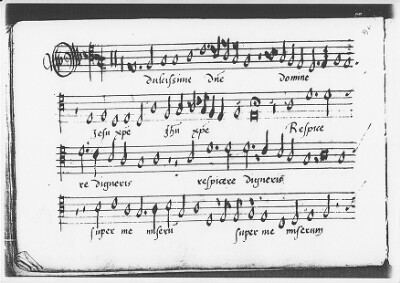 Dulcissime Dne Domne
Jesu xpe Jhu xpe Respice
re digneris respicere digneris
super me miseru super me miserum